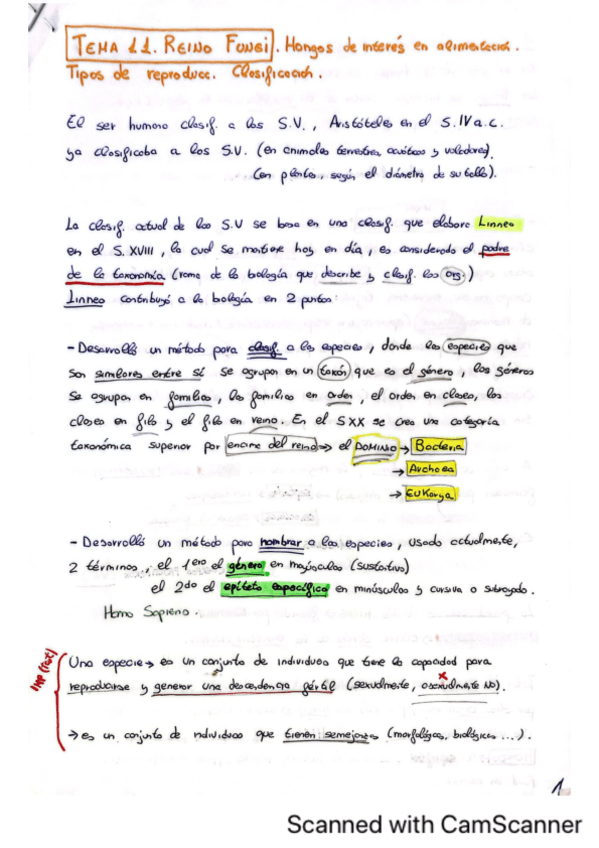 TEMA 11. REINO FUNGI. Hongos de interés en alimentación.
Tipos de reproducc. Clasificación.
El ser humano clasif. a los S.V., Aristóteles en el S.IV a.c.
ya clasificaba a los S.V. (en animales terrestres, acuáticos y voladores).
(en plantas, según el diámetro de su tallo).
La clasif. actual de los S.V se basa en una clasif. que elaboro Linneo
en el S. XVIII, la cual se mantiene hoy en día, es considerado el padre
de la taxonomía (rama de la biología que describe y clasif. los org.)
Linneo contribuyó a la biología en 2 puntos:
- Desarrolló un método para clasif. a las especies, donde las especies que
son similares entre sí se agrupan en un taxón que es el género, los géneros
se agrupan en familias, las familias en orden, el orden en clases, las
clases en filo y el filo en reino. En el S XX se crea una categoría
taxonómica superior por encima del reino → el DOMINIO → Bacteria
→ Archaea
→ Eukarya
- Desarrolló un método para nombrar a las especies, usado actualmente,
2 términos, el 1ero el género en mayúsculas (sustantivo)
el 2do el epíteto específico en minúsculas y cursiva o subrayado.
Homo Sapiens.
IMP (test)
Una especie → es un conjunto de individuos que tiene la capacidad para
reproducirse y generar una descendencia fértil (sexualmente, asexualmente NO).
→ es un conjunto de individuos que tienen semejanzas (morfológicas, biológicas ...).
1
Scanned with CamScanner